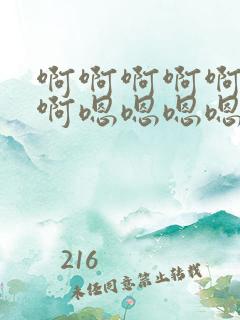 啊啊啊啊啊
啊嗯嗯嗯嗯
216
未经同意禁止转载